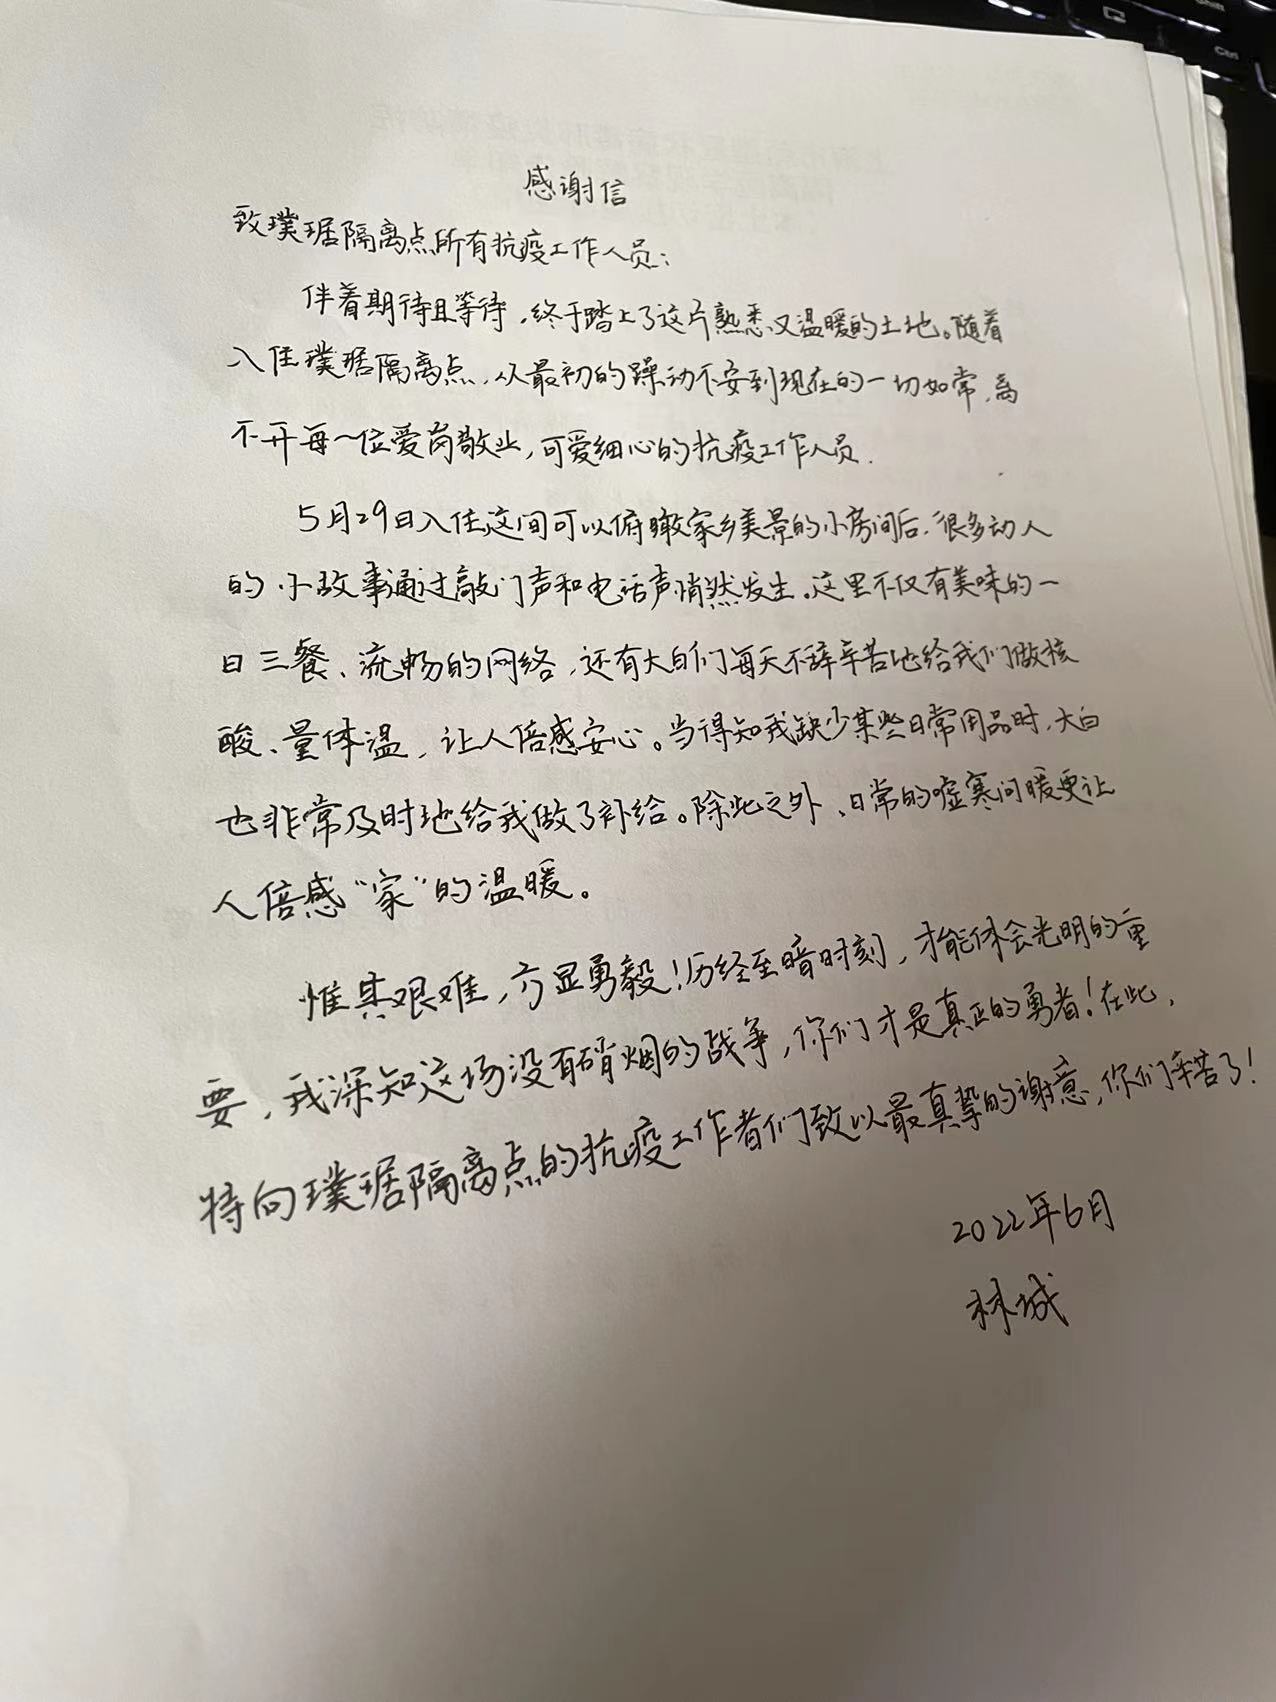 感谢信
致璞琚隔离点所有抗疫工作人员：
伴着期待且等待，终于踏上了这片熟悉又温暖的土地。随着
入住璞琚隔离点，从最初的躁动不安到现在的一切如常，离
不开每一位爱岗敬业，可爱细心的抗疫工作人员.
5月29日入住这间可以俯瞰家乡美景的小房间后，很多动人
的小故事通过敲门声和电话声悄然发生。这里不仅有美味的一
日三餐、流畅的网络，还有大白们每天不辞辛苦地给我们做核
酸、量体温，让人倍感安心。当得知我缺少某些日常用品时，大白
也非常及时地给我做了补给。除此之外，日常的嘘寒问暖更让
人倍感“家”的温暖。
惟其艰难，方显勇毅！历经至暗时刻，才能体会光明的重
要，我深知这场没有硝烟的战争，你们才是真正的勇者！在此，
特向璞琚隔离点的抗疫工作者们致以最真挚的谢意，你们辛苦了！
2022年6月
林城